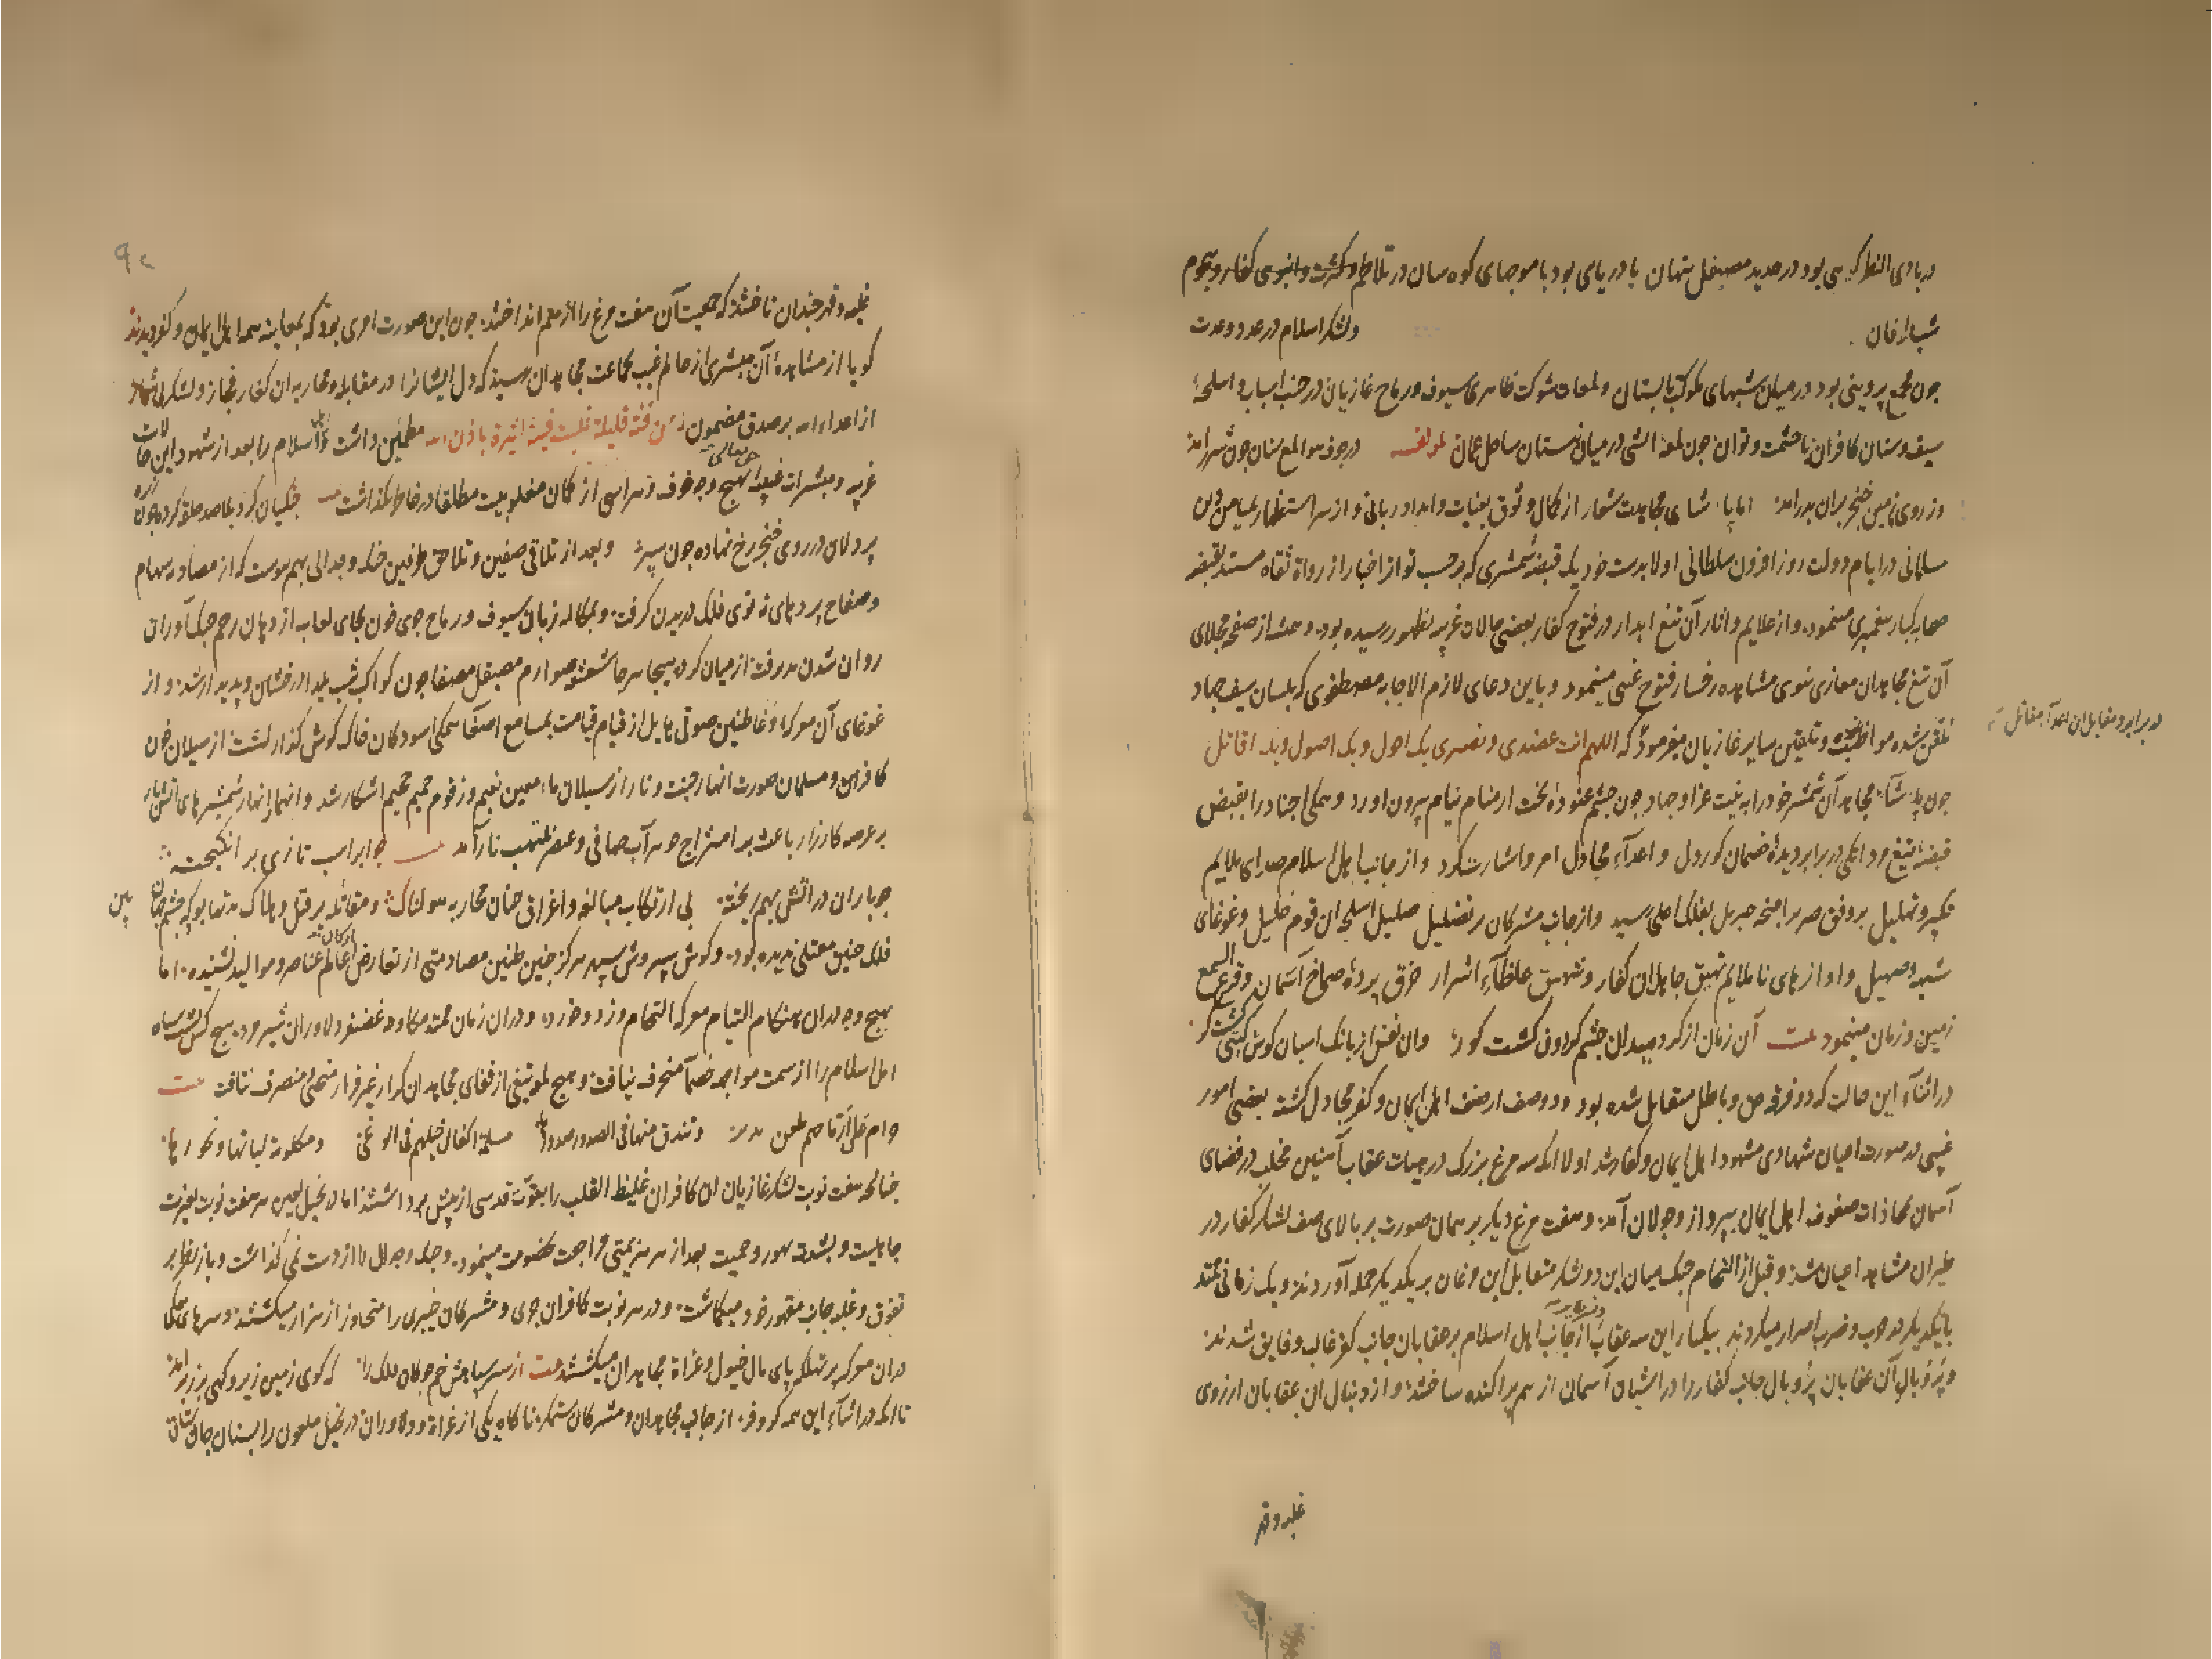 در بادی النظر کوهی بود در حدید مصیقل پنهان یا دریای بود با موجهای کوه سان در تلاطم و کثرت و انبوهی کفار و هجوم
و لشکر اسلام در عدد و عدت
چون مجمع پروینی بود در میان شبهای کواکب تابستان و لمعات شوکت ظاهری سیوف و رماح غازیان در جنب اسباب و اسلحهٔ
سیف و سنان کافران با حشمت و توان چون لمعهٔ آتشی در میان نیستان ساحل عمان لمولفه در جوف هوا لمع سنان چون شرر آمد
وز روی زمین خنجر بران بدر آمد اما پادشاه مجاهدت شعار از کمال وثوق بعنایت و امداد ربانی و از سر استظهار بمیامن دین
سلمانی در ایام دولت روز افزون سلطانی اولا بدست خود یک قبضه شمشیری که بر حسب تواتر اخبار از رواة ثقاه مستند بقبضه
صحابه کبار پیغمبری مینمود و از علایم و آثار آن تیغ ابدار در فتوح کفار بعضی حالات غریبه بظهور رسیده بود و همیشه از صفحه مجلای
آن تیغ مجاهدان مغازی نبوی مشاهده رخسار فتوح غیبی مینمود و باین دعای لازم الاجابه مصطفوی که بلسان سیف جهاد
تلقین شده مواظبت و تلقین سایر غازیان میفرمود که اللهم انت عضدی و نصیری بک احول و بک اصول و بک اقاتل
در برابر و مقابل ان اعدآ مقاتل
چون پادشاه مجاهد آن شمشیر خود را به نیت غزا و جهاد چون چشم غنوده بخت از منام نیام بیرون آورد و همگی اجناد را بقبض
قبضهٔ تیغ مرد افکن در برابر دیدهٔ خصمان کوردل و اعدآء مجادل امر و اشارت کرد و از جانب اهل اسلام صدای ملایم
تکبیر و تهلیل بر وفق صریر اجنحه جبریل بفلک اعلی رسید و از جانب مشرکان پر تضلیل صلیل اسلحه ان قوم ضلیل و غوغای
شیهه و صهیل و اوازهای ناملایم نهیق جاهلان کفار و شهیق غلظآء اشرار خرق پردهٔ صماخ آسمان و قرع السمع
زمین و زمان مینمود بیت آن زمان از گرد میدان چشم گردون گشت کور وان نفس از بانگ اسبان گوش گیتی گشت کر
در اثنآء این حالت که دو فرقه حق و باطل متقابل شده بود و دو صف از صنف اهل ایمان و کفر مجادل گشته بعضی امور
غیبی در صورت اعیان شهادی مشهود اهل ایمان و کفار شد اولا انکه سه مرغ بزرک در هیات عقاب آهنین مخلب در فضای
آسمان محاذات صفوف اهل ایمان بپرواز و جولان آمد و هفت مرغ دیکر بر همان صورت بر بالای صف لشکر کفار در
طیران مشاهد اعیان شد و قبل از التحام جنک میان این دو لشکر متقابل این مرغان بر یکدیکر حمله آوردند و یک زمانی ممتد
بایکدیکر در حرب و ضرب اصرار میکردند بیکبار این سه عقاب از جانب اهل اسلام بر عقابان جانب کفر غالب و فایق شدند
و پر و بال آن عقابان پر و بال جانب کفار را در آشیان آسمان از هم پراکنده ساختند و از دنبال ان عقابان از روی
غلبه و قهر
۹۲
غلبه و قهر چندان تاختند که جمعیت آن هفت مرغ را از هم انداختند چون این صورت امری بود که بمعاینه همه اهل ایمان و کفر دیدند
کویا از مشاهدهٔ آن مبشری از عالم غیب بجماعت مجاهدان رسید که دل ایشانرا در مقابله و محاربه ان کفار فجار و لشکر بی شمار
از اعداء الله بر صدق مضمون کم من فئة قلیلة غلبت فئة کثیرة باذن الله مطمئن داشت اسلام را بعد از شهود این حالات
غریبه و مبشرات غیبیه بهیچ وجه خوف و هراسی از گمان مغلوبیت مطلقا در خاطر نگذاشت بیت جنگیان گرد بلا صد حلقه کرده چون زره
پر دلان در روی خنجر رخ نهاده چون سپر و بعد از تلاقی صفین و تلاحق طرفین جنک و جدالی بهم پیوست که از مصادر سهام
و صفاح پردهای نه توی فلک دریدن گرفت و بمکالمه زبان سیوف و رماح جوی خون بجای لعاب از دهان رحم جنک آوران
روان شدن پذیرفت از میان گرد هیجا هر جا شعشعه صوارم مصیقل مصفا چون کواکب شب یلدا درخشان و پدیدار شد و از
غوغای آن معرکه وغا طنین صوتی هایل از قیام قیامت بمسامع اصغا همگی اسودکان خاک گوش گذار گشت از سیلان خون
کافران و مسلمان صورت انهار جنت و نار از سیلان ماء معین نعیم و زقوم حمیم جحیم اشکار شد و انهار شمشیرهای آتش بار
بر عرصه کارزار باعث بر امتزاج جوهر آب صافی و عنصر ملتهب نار آمد بیت چو ابر اسب تازی بر انگیخته
چو باران در آتش بهم ریخته بی ارتکاب مبالغه و اغراق چنان محاربه هولناک و مقاتله بر قتل و هلاک مدتها بود که چشم جهان بین
فلک چنین مقتلی ندیده بود و گوش سپهر هرگز چنین طنین مصادمتی از تعارض ارکان عالم عناصر و موالید نشنیده اما
بهیچ وجه دران هنگام التیام معرکه التحام و زد و خورد و دران زمان ممتد مکاوحه غضنفر دلاوران شیر مرد هیچ کس پشت سپاه
اهل اسلام را از سمت مواجهه خصمآ منحرف نیافت و هیچ لمع تیغی از قفای مجاهدان کرار غیر فرار منحنی و منصرف نتافت بیت
حرام علی ارماحهم طعن مدبر و تندق منها فی الصدور صدورها مسلمة اکفال خیلهم فی الوغی و مکلومة لباتها و نحورها
چنانکه هفت نوبت لشکر غازیان ان کافران غلیظ القلب را بقوت قدسی از پیش برداشتند اما درنخیل لعین هر هفت نوبت بغیرت
جاهلیت و بشدت تهور و حمیت بعد از هر هزیمتی مراجعت بخصومت مینمود و جنک و جدال را از دست نمی گذاشت و باز نظر بر
تفوق و غلبه جانب مقهور خود میگماشت و در هر نوبت کافران جوی و مشرکان خیبری را متجاوز از هزار میکشتند و سرهای همکی
دران معرکه پر تهلکه پای مال خیول و غزاة مجاهدان میگشتند بیت از سر سپاهش خم چوگان فلک را که گوی زمین زیر و گهی بر زبر آمد
تا انکه در اثنآء این همه کر و فر از جانب مجاهدان و مشرکان ستمگر ناکاه یکی از غزاة و دلاوران درنخیل ملعون را بسنان جان ستان